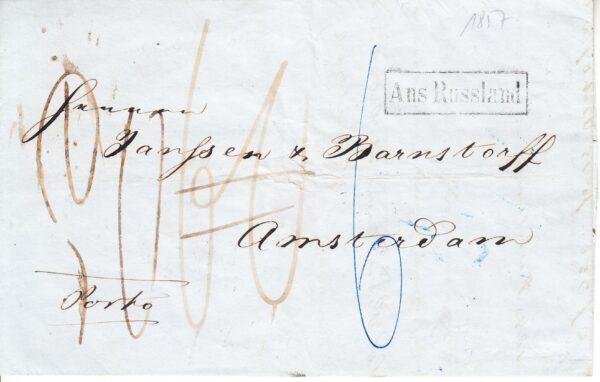 1857
Aus Russland
Herren
Janssen & Barnstorff
Amsterdam
Porto
6